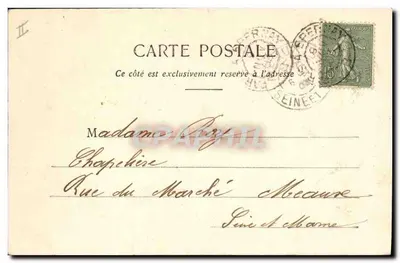 II
CARTE POSTALE
Ce côté est exclusivement réservé à l'adresse
EPERNAY
EPERNAY
SEINE ET
Madame
Chapelière
Rue du Marché Meaux
Seine et Marne